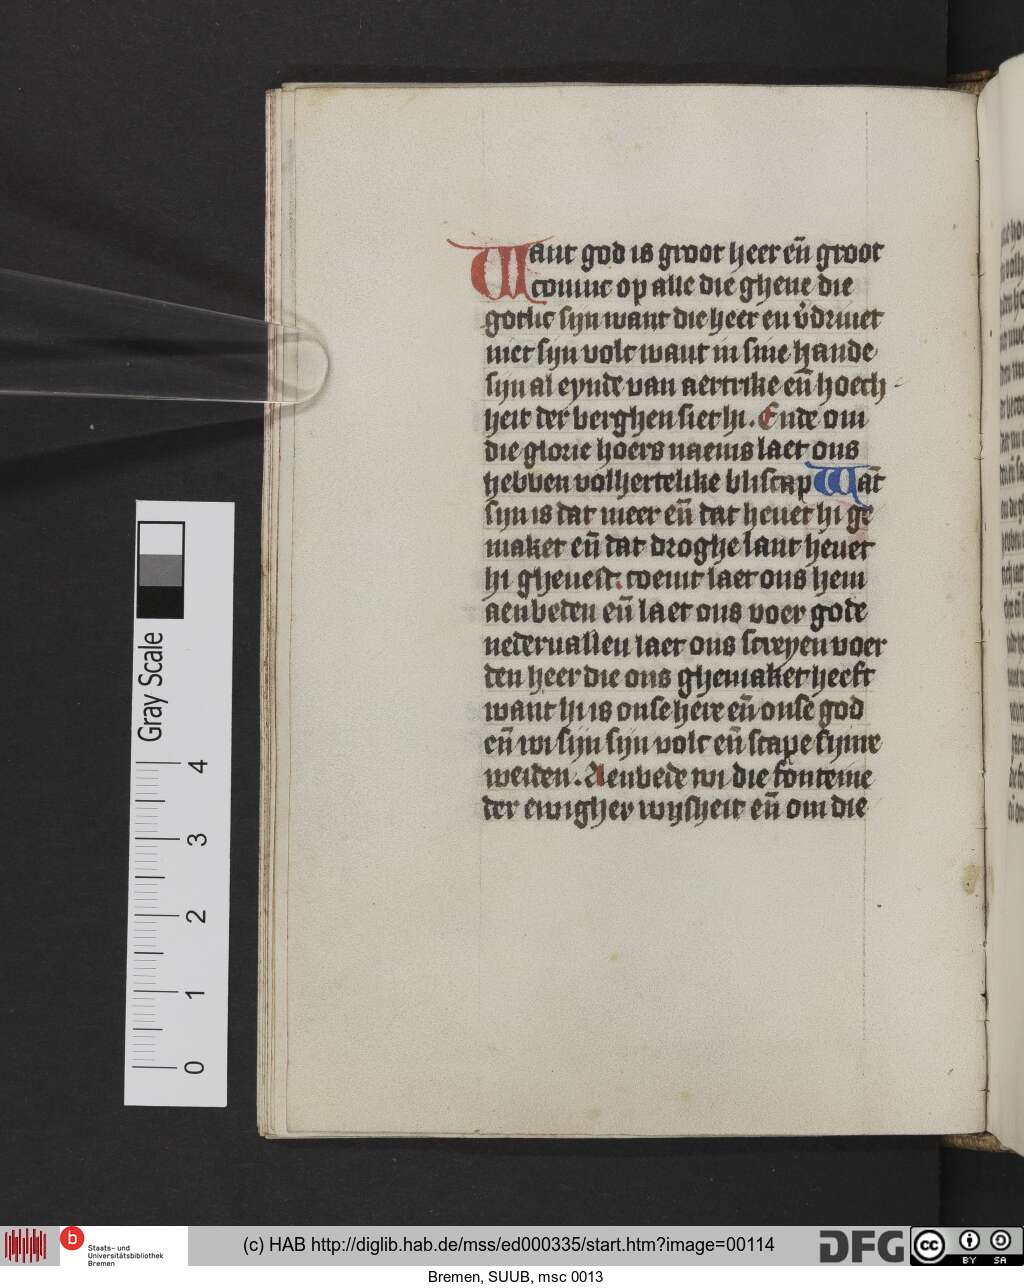 Want god is groot heer eñ groot
coninc op alle die ghene die
gotlic sijn want die heer en v̓driuet
niet sijn volc want in sine hande
sijn al eynde van aertrike eñ hoech-
heit der berghen siet hi. Ende om
die glorie hoers naems laet ons
hebben volhertelike bliscap Wāt
sijn is dat meer eñ dat heuet hi ge
maket eñ dat droghe lant heuet
hi gheuest: coemt laet ons hem
aenbeden eñ laet ons voer gode
nedervallen laet ons screyen voer
den heer die ons ghemaket heeft
want hi is onse here eñ onse god
eñ wi sijn sijn volc eñ scape sijnre
weiden. Aenbede wi die fonteine
der ewigher wijsheit eñ om die
Gray Scale
4
3
2
1
0
b
Staats- und
Universitätsbibliothek
Bremen
(c) HAB http://diglib.hab.de/mss/ed000335/start.htm?image=00114
DFG
cc
BY SA
Bremen, SUUB, msc 0013